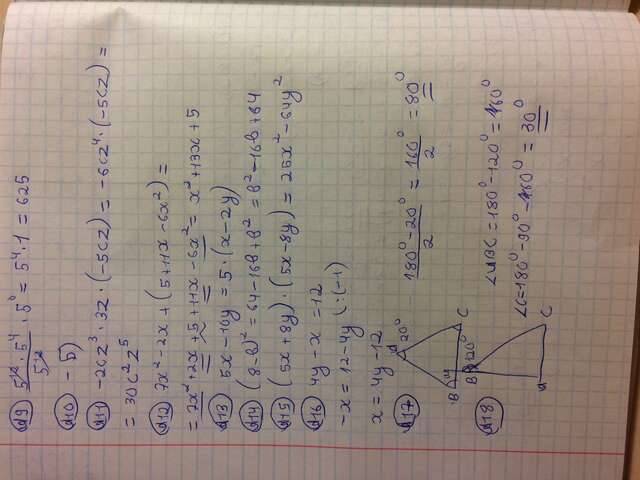 №9 5¹² · 5⁴ / 5¹² · 5⁰ = 5⁴ · 1 = 625
№10 - 5)
№11 -2cz³ · 3z · (-5cz) = -6cz⁴ · (-5cz) =
= 30c²z⁵
№12 7x² - 2x + (5 + 11x - 6x²) =
= 7x² + 2x + 5 + 11x - 6x² = x² + 13x + 5
№13 5x - 10y = 5 · (x - 2y)
№14 (8 - в)² = 64 - 16в + в² = в² - 16в + 64
№15 (5x + 8y) · (5x - 8y) = 25x² - 64y²
№16 4y - x = 12
-x = 12 - 4y (: (-1)
x = 4y - 12
№17 20° B C 180° - 20° / 2 = 160° / 2 = 80°
№18 B 120° C ∠ABC = 180° - 120° = 60°
∠C = 180° - 90° - 60° = 30°